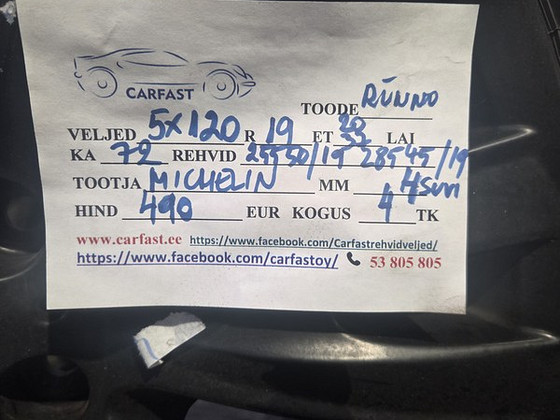 CARFAST
TOODE RŪNNO
VELJED 5x120 R 19 ET LAI
KA 72 REHVID 25550/19 28545/19
TOOTJA MICHELIN MM
HIND 490 EUR KOGUS 4 TK
www.carfast.ee https://www.facebook.com/Carfastrehvidveljed/
https://www.facebook.com/carfastoy/ 53 805 805